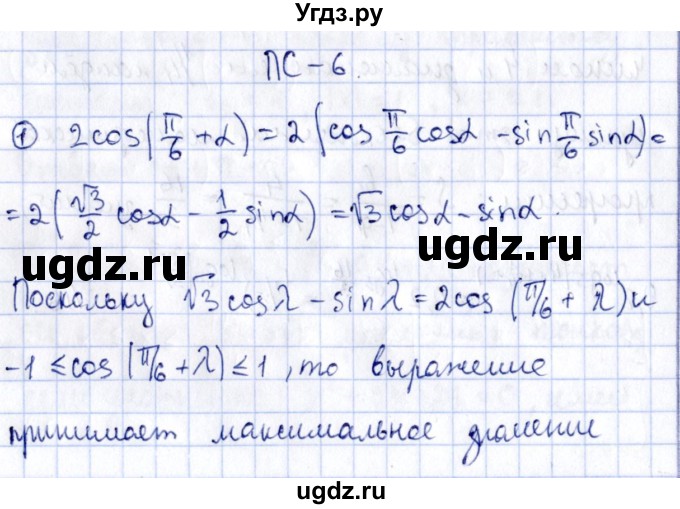 Угдз.ру
ПС - 6.
① 2cos(π/6 + α) = 2(cos π/6 cosα - sin π/6 sinα) =
= 2(√3/2 cosα - 1/2 sinα) = √3 cosα - sinα.
ugdz.ru ugdz.ru
Поскольку √3 cosλ - sinλ = 2cos (π/6 + λ) и
-1 ≤ cos (π/6 + λ) ≤ 1, то выражение
принимает максимальное значение
ugdz.ru
ugdz.ru